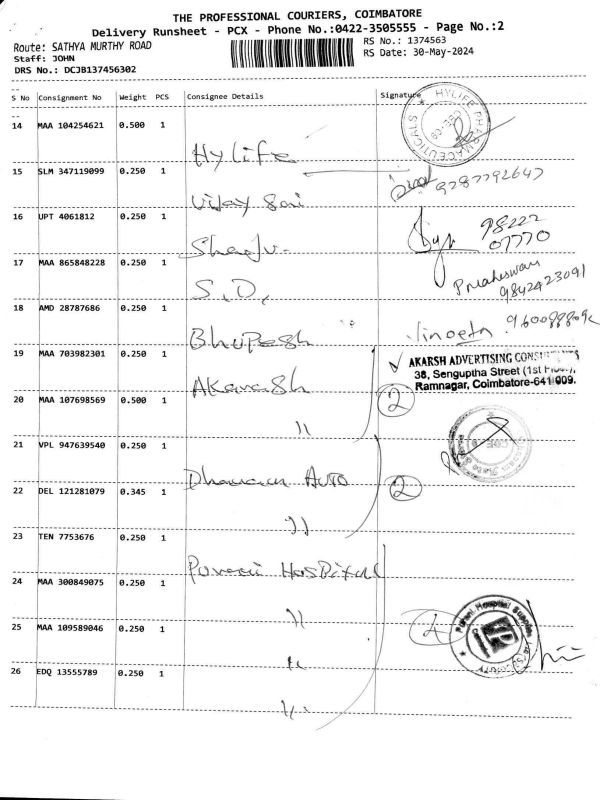 THE PROFESSIONAL COURIERS, COIMBATORE
Delivery Runsheet - PCX - Phone No.:0422-3505555 - Page No.:2
Route: SATHYA MURTHY ROAD
Staff: JOHN
DRS No.: DCJB137456302
RS No.: 1374563
RS Date: 30-May-2024
S No Consignment No Weight PCS Consignee Details Signature
14 MAA 104254621 0.500 1 Hylife
HYLIFE PHARMACEUTICALS
15 SLM 347119099 0.250 1 Vijay Sai
16 UPT 4061812 0.250 1
98222
07770
17 MAA 865848228 0.250 1 S.D.
9842423091
18 AMD 28787686 0.250 1 Bhupesh
19 MAA 703982301 0.250 1 Akarash 2
AKARSH ADVERTISING CONSULTANTS
38, Senguptha Street (1st Floor),
Ramnagar, Coimbatore-641 009.
20 MAA 107698569 0.500 1 "
21 VPL 947639540 0.250 1 Auto 2
22 DEL 121281079 0.345 1 "
23 TEN 7753676 0.250 1 Hospital
24 MAA 300849075 0.250 1 " 4
25 MAA 109589046 0.250 1 "
26 EDQ 13555789 0.250 1 "